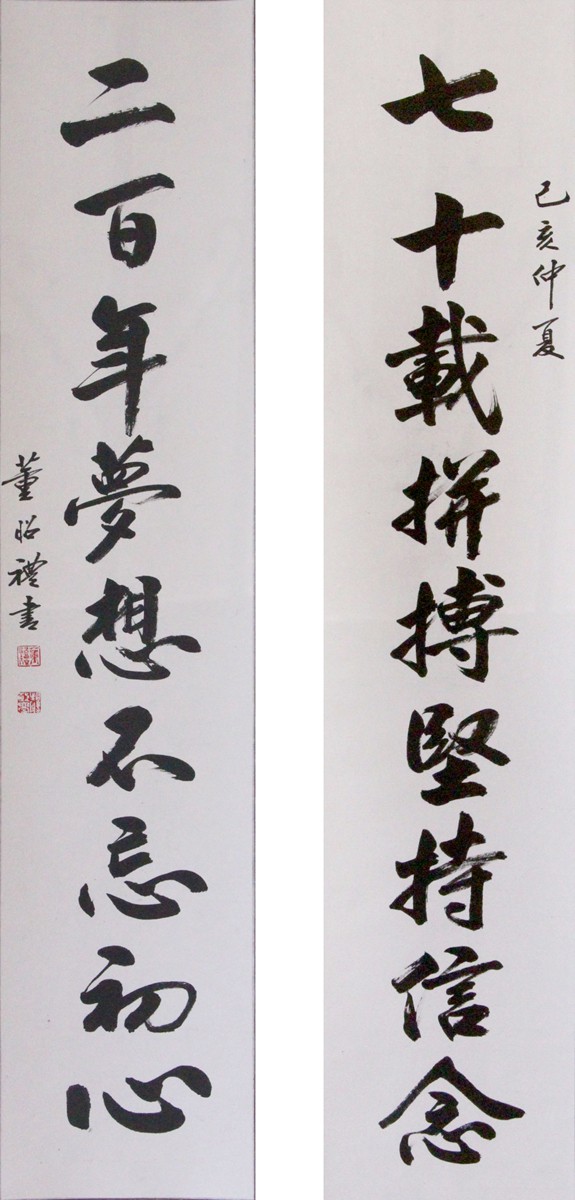 己亥仲夏
七十載拼搏堅持信念
二百年夢想不忘初心
董昭禮書